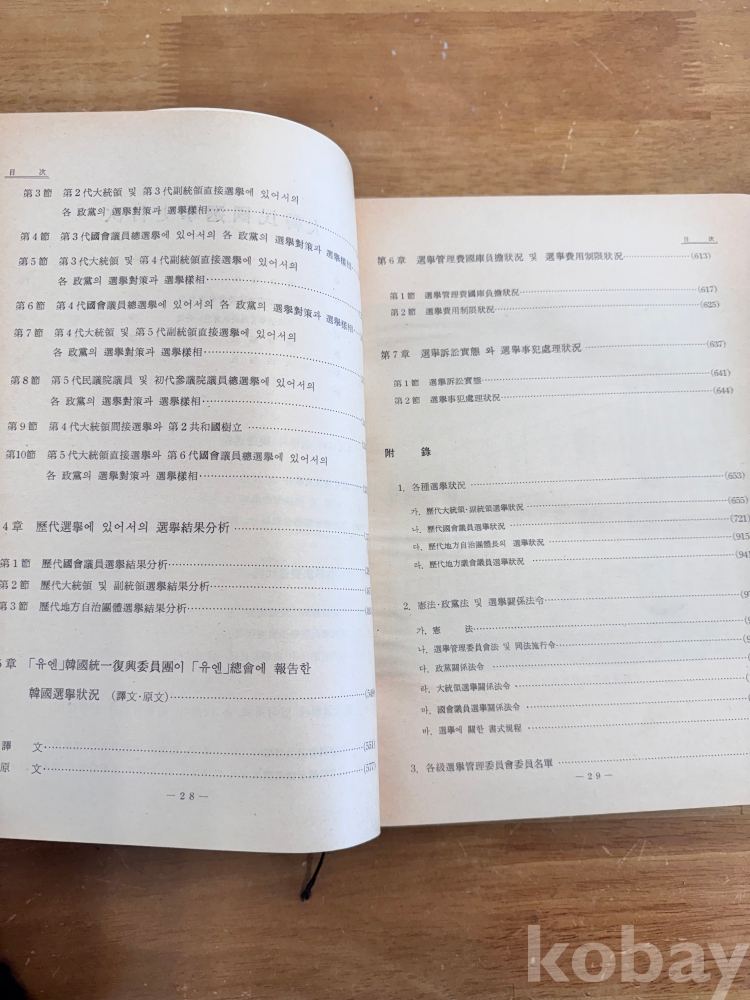 目 次
第3節 第2代大統領 및 第3代副統領直接選擧에 있어서의
各 政黨의 選擧對策과 選擧樣相
第4節 第3代國會議員總選擧에 있어서의 各 政黨의 選擧對策과 選擧樣相
第5節 第3代大統領 및 第4代副統領直接選擧에 있어서의
各 政黨의 選擧對策과 選擧樣相
第6節 第4代國會議員總選擧에 있어서의 各 政黨의 選擧對策과 選擧樣相
第7節 第4代大統領 및 第5代副統領直接選擧에 있어서의
各 政黨의 選擧對策과 選擧樣相
第8節 第5代民議院議員 및 初代參議院議員總選擧에 있어서의
各 政黨의 選擧對策과 選擧樣相
第9節 第4代大統領間接選擧와 第2共和國樹立
第10節 第5代大統領直接選擧와 第6代國會議員總選擧에 있어서의
各 政黨의 選擧對策과 選擧樣相
4章 歷代選擧에 있어서의 選擧結果分析
第1節 歷代國會議員選擧結果分析
第2節 歷代大統領 및 副統領選擧結果分析
第3節 歷代地方自治團體選擧結果分析
章 「유엔」韓國統一復興委員團이 「유엔」總會에 報告한
韓國選擧狀況 (譯文·原文) (549)
譯 文 (551)
原 文 (577)
— 28 —
目 次
第6章 選擧管理費國庫負擔狀況 및 選擧費用制限狀況 (613)
第1節 選擧管理費國庫負擔狀況 (617)
第2節 選擧費用制限狀況 (625)
第7章 選擧訴訟實態 와 選擧事犯處理狀況 (637)
第1節 選擧訴訟實態 (641)
第2節 選擧事犯處理狀況 (644)
附 錄
1. 各種選擧狀況 (653)
가. 歷代大統領·副統領選擧狀況 (655)
나. 歷代國會議員選擧狀況 (721)
다. 歷代地方自治團體長의 選擧狀況 (915
라. 歷代地方議會議員選擧狀況 (94
2. 憲法·政黨法 및 選擧關係法令 (9
가. 憲 法
나. 選擧管理委員會法 및 同法施行令
다. 政黨關係法令
라. 大統領選擧關係法令
마. 國會議員選擧關係法令
바. 選擧에 關한 書式規程
3. 各級選擧管理委員會委員名單
— 29 —
kobay